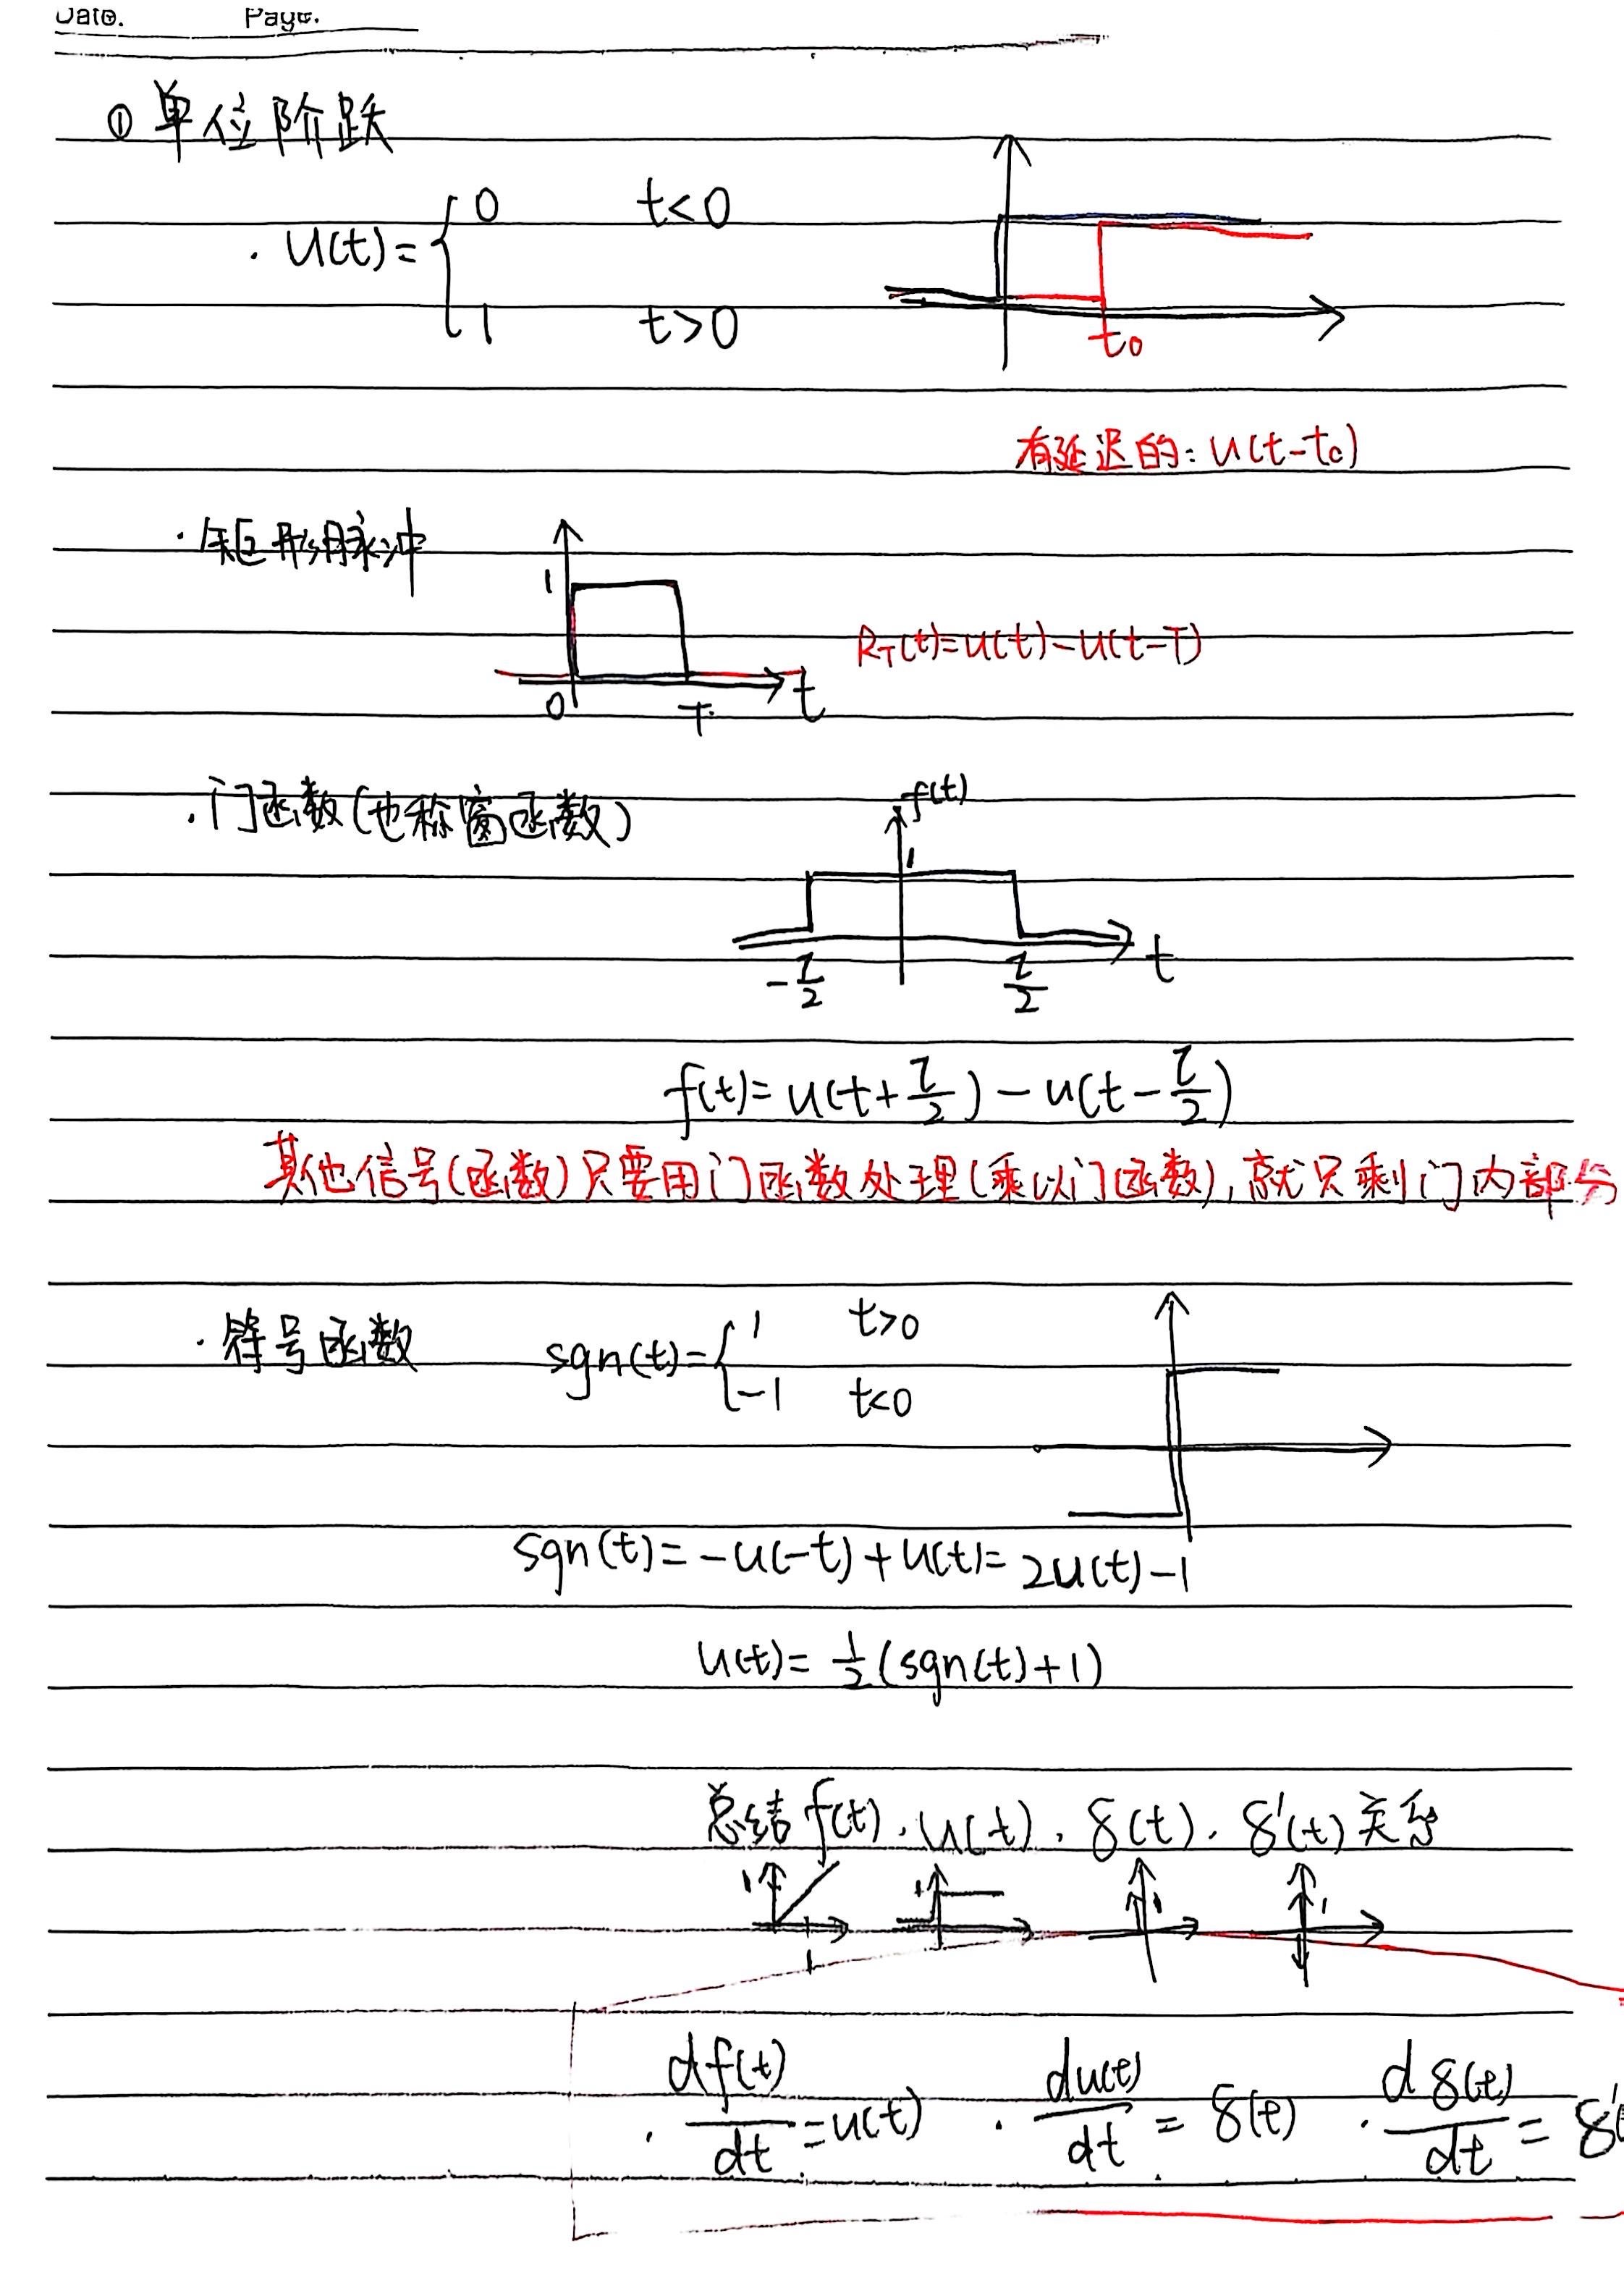 Date. Page.
① 单位阶跃
· u(t)= { 0 t<0
1 t>0
t₀
有延迟的: u(t-t₀)
· 矩形脉冲
1
R_T(t)=u(t)-u(t-T)
0 T t
· 门函数(也称窗函数)
f(t)
1
-τ/2 τ/2 t
f(t)= u(t+τ/2) - u(t-τ/2)
其他信号(函数)只要用门函数处理(乘以门函数), 就只剩门内部分
· 符号函数 sgn(t)= { 1 t>0
-1 t<0
sgn(t)= -u(-t)+u(t)= 2u(t)-1
u(t)= 1/2 (sgn(t)+1)
总结 f(t)、u(t)、δ(t)、δ'(t) 关系
1 1 1 1
1
· df(t)/dt = u(t) · du(t)/dt = δ(t) · dδ(t)/dt = δ'(